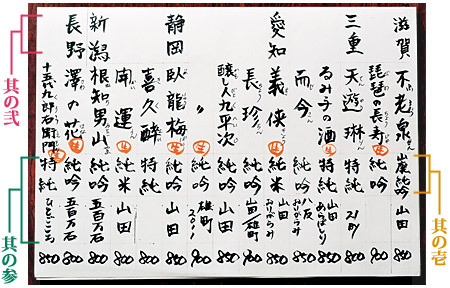 其の弐
其の参
其の壱
滋賀 不老泉 山廃純吟 山田 850
琵琶の長寿 生 純吟
三重 天遊琳 特純 21BY 800
るみ子の酒 生 特純 山田 あらばしり 850
而今 純吟 八反 おりがらみ
愛知 義侠 生 純吟 山田 おりがらみ
長珍 純吟 山田/雄町
醸し人九平次 純吟 山田 850
〃 生 純吟 雄町 900
静岡 臥龍梅 純吟 山田 850
喜久酔 特純 800
開運 生 純米 山田 800
新潟 根知男山 純吟 五百万石
長野 澤の花 生 純吟 五百万石 800
十五代九郎右衛門 生 特純 ひとごこち 850